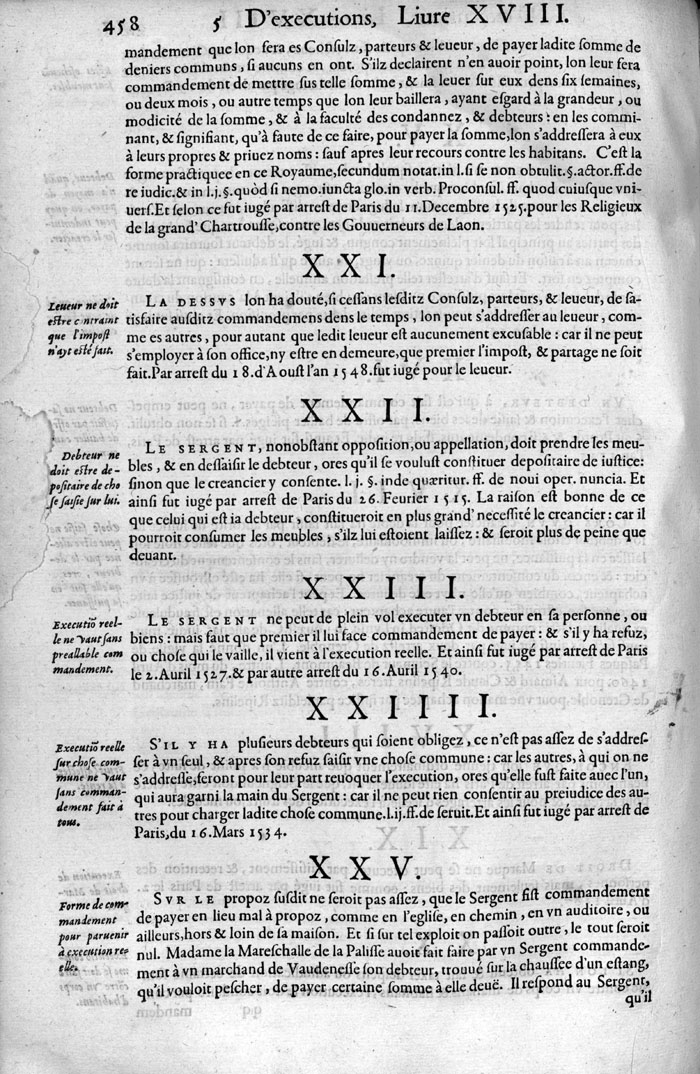 458 5 D'executions, Liure XVIII.
mandement que lon ſera es Conſulz, parteurs & leueur, de payer ladite ſomme de
deniers communs, ſi aucuns en ont. S'ilz declairent n'en auoir point, lon leur fera
commandement de mettre ſus telle ſomme, & la leuer ſur eux dens ſix ſemaines,
ou deux mois, ou autre temps que lon leur baillera, ayant eſgard à la grandeur, ou
modicité de la ſomme, & à la faculté des condannez, & debteurs: en les commi-
nant, & ſignifiant, qu'à faute de ce faire, pour payer la ſomme, lon s'addreſſera à eux
à leurs propres & priuez noms: ſauf apres leur recours contre les habitans. C'eſt la
forme practiquee en ce Royaume, ſecundum notat. in l. ſi ſe non obtulit. §. actor. ff. de
re iudic. & in l. j. §. quòd ſi nemo. iuncta glo. in verb. Proconſul. ff. quod cuiuſque vni-
uerſ. Et ſelon ce fut iugé par arreſt de Paris du 11. Decembre 1525. pour les Religieux
de la grand' Chartrouſſe, contre les Gouuerneurs de Laon.
XXI.
Leueur ne doit
eſtre contraint
que l'impoſt
n'ayt eſté fait.
LA DESSVS lon ha douté, ſi ceſſans leſditz Conſulz, parteurs, & leueur, de ſa-
tisfaire auſditz commandemens dens le temps, lon peut s'addreſſer au leueur, com-
me es autres, pour autant que ledit leueur eſt aucunement excuſable: car il ne peut
s'employer à ſon office, ny eſtre en demeure, que premier l'impoſt, & partage ne ſoit
fait. Par arreſt du 18. d'Aouſt l'an 1548. fut iugé pour le leueur.
XXII.
Debteur ne
doit eſtre de-
poſitaire de cho
ſe ſaiſie ſur lui.
LE SERGENT, nonobſtant oppoſition, ou appellation, doit prendre les meu-
bles, & en deſſaiſir le debteur, ores qu'il ſe vouluſt conſtituer depoſitaire de iuſtice:
ſinon que le creancier y conſente. l. j. §. inde quæritur. ff. de noui oper. nuncia. Et
ainſi fut iugé par arreſt de Paris du 26. Feurier 1515. La raiſon eſt bonne de ce
que celui qui eſt ia debteur, conſtitueroit en plus grand' neceſſité le creancier: car il
pourroit conſumer les meubles, s'ilz lui eſtoient laiſſez: & ſeroit plus de peine que
deuant.
XXIII.
Executiō reel-
le ne vaut ſans
preallable com
mandement.
LE SERGENT ne peut de plein vol executer vn debteur en ſa perſonne, ou
biens: mais faut que premier il lui face commandement de payer: & s'il y ha refuz,
ou choſe qui le vaille, il vient à l'execution reelle. Et ainſi fut iugé par arreſt de Paris
le 2. Auril 1527. & par autre arreſt du 16. Auril 1540.
XXIIII.
Executiō reelle
ſur choſe com-
mune ne vaut
ſans comman-
dement fait à
tous.
S'IL Y HA pluſieurs debteurs qui ſoient obligez, ce n'eſt pas aſſez de s'addreſ-
ſer à vn ſeul, & apres ſon refuz ſaiſir vne choſe commune: car les autres, à qui on ne
s'addreſſe, ſeront pour leur part reuoquer l'execution, ores qu'elle fuſt faite auec l'un,
qui aura garni la main du Sergent: car il ne peut rien conſentir au preiudice des au-
tres pour charger ladite choſe commune. l. ij. ff. de ſeruit. Et ainſi fut iugé par arreſt de
Paris, du 16. Mars 1534.
XXV.
Forme de com-
mandement
pour paruenir
à execution re
elle.
SVR LE propoz ſuſdit ne ſeroit pas aſſez, que le Sergent fiſt commandement
de payer en lieu mal à propoz, comme en l'egliſe, en chemin, en vn auditoire, ou
ailleurs, hors & loin de ſa maiſon. Et ſi ſur tel exploit on paſſoit outre, le tout ſeroit
nul. Madame la Mareſchalle de la Paliſſe auoit fait faire par vn Sergent commande-
ment à vn marchand de Vaudeneſſe ſon debteur, trouué ſur la chauſſee d'un eſtang,
qu'il vouloit peſcher, de payer certaine ſomme à elle deuë. Il reſpond au Sergent,
qu'il